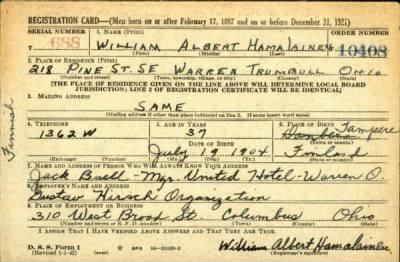 REGISTRATION CARD—(Men born on or after February 17, 1897 and on or before December 31, 1921)
SERIAL NUMBER 1. NAME (Print) ORDER NUMBER
688 WILLIAM ALBERT HAMALAINEN 10408
(First) (Middle) (Last)
2. PLACE OF RESIDENCE (Print)
218 PINE ST. SE WARREN TRUMBULL OHIO
(Number and street) (Town, township, village, or city) (County) (State)
[THE PLACE OF RESIDENCE GIVEN ON THE LINE ABOVE WILL DETERMINE LOCAL BOARD
JURISDICTION; LINE 2 OF REGISTRATION CERTIFICATE WILL BE IDENTICAL]
3. MAILING ADDRESS
SAME
(Mailing address if other than place indicated on line 2. If same insert word same)
4. TELEPHONE 5. AGE IN YEARS 6. PLACE OF BIRTH
1362 W 37 Tampere
DATE OF BIRTH (Town or county)
July 19 1904 Finland
(Exchange) (Number) (Mo.) (Day) (Yr.) (State or country)
Finnish
7. NAME AND ADDRESS OF PERSON WHO WILL ALWAYS KNOW YOUR ADDRESS
Jack Buell - Mgr. United Hotel - Warren O.
8. EMPLOYER'S NAME AND ADDRESS
Gustav Hirsch Organization
9. PLACE OF EMPLOYMENT OR BUSINESS
310 West Broad St. Columbus Ohio
(Number and street or R. F. D. number) (Town) (County) (State)
I AFFIRM THAT I HAVE VERIFIED ABOVE ANSWERS AND THAT THEY ARE TRUE.
D. S. S. Form 1
(Revised 1-1-42) (over) William Albert Hamalainen
(Registrant's signature)